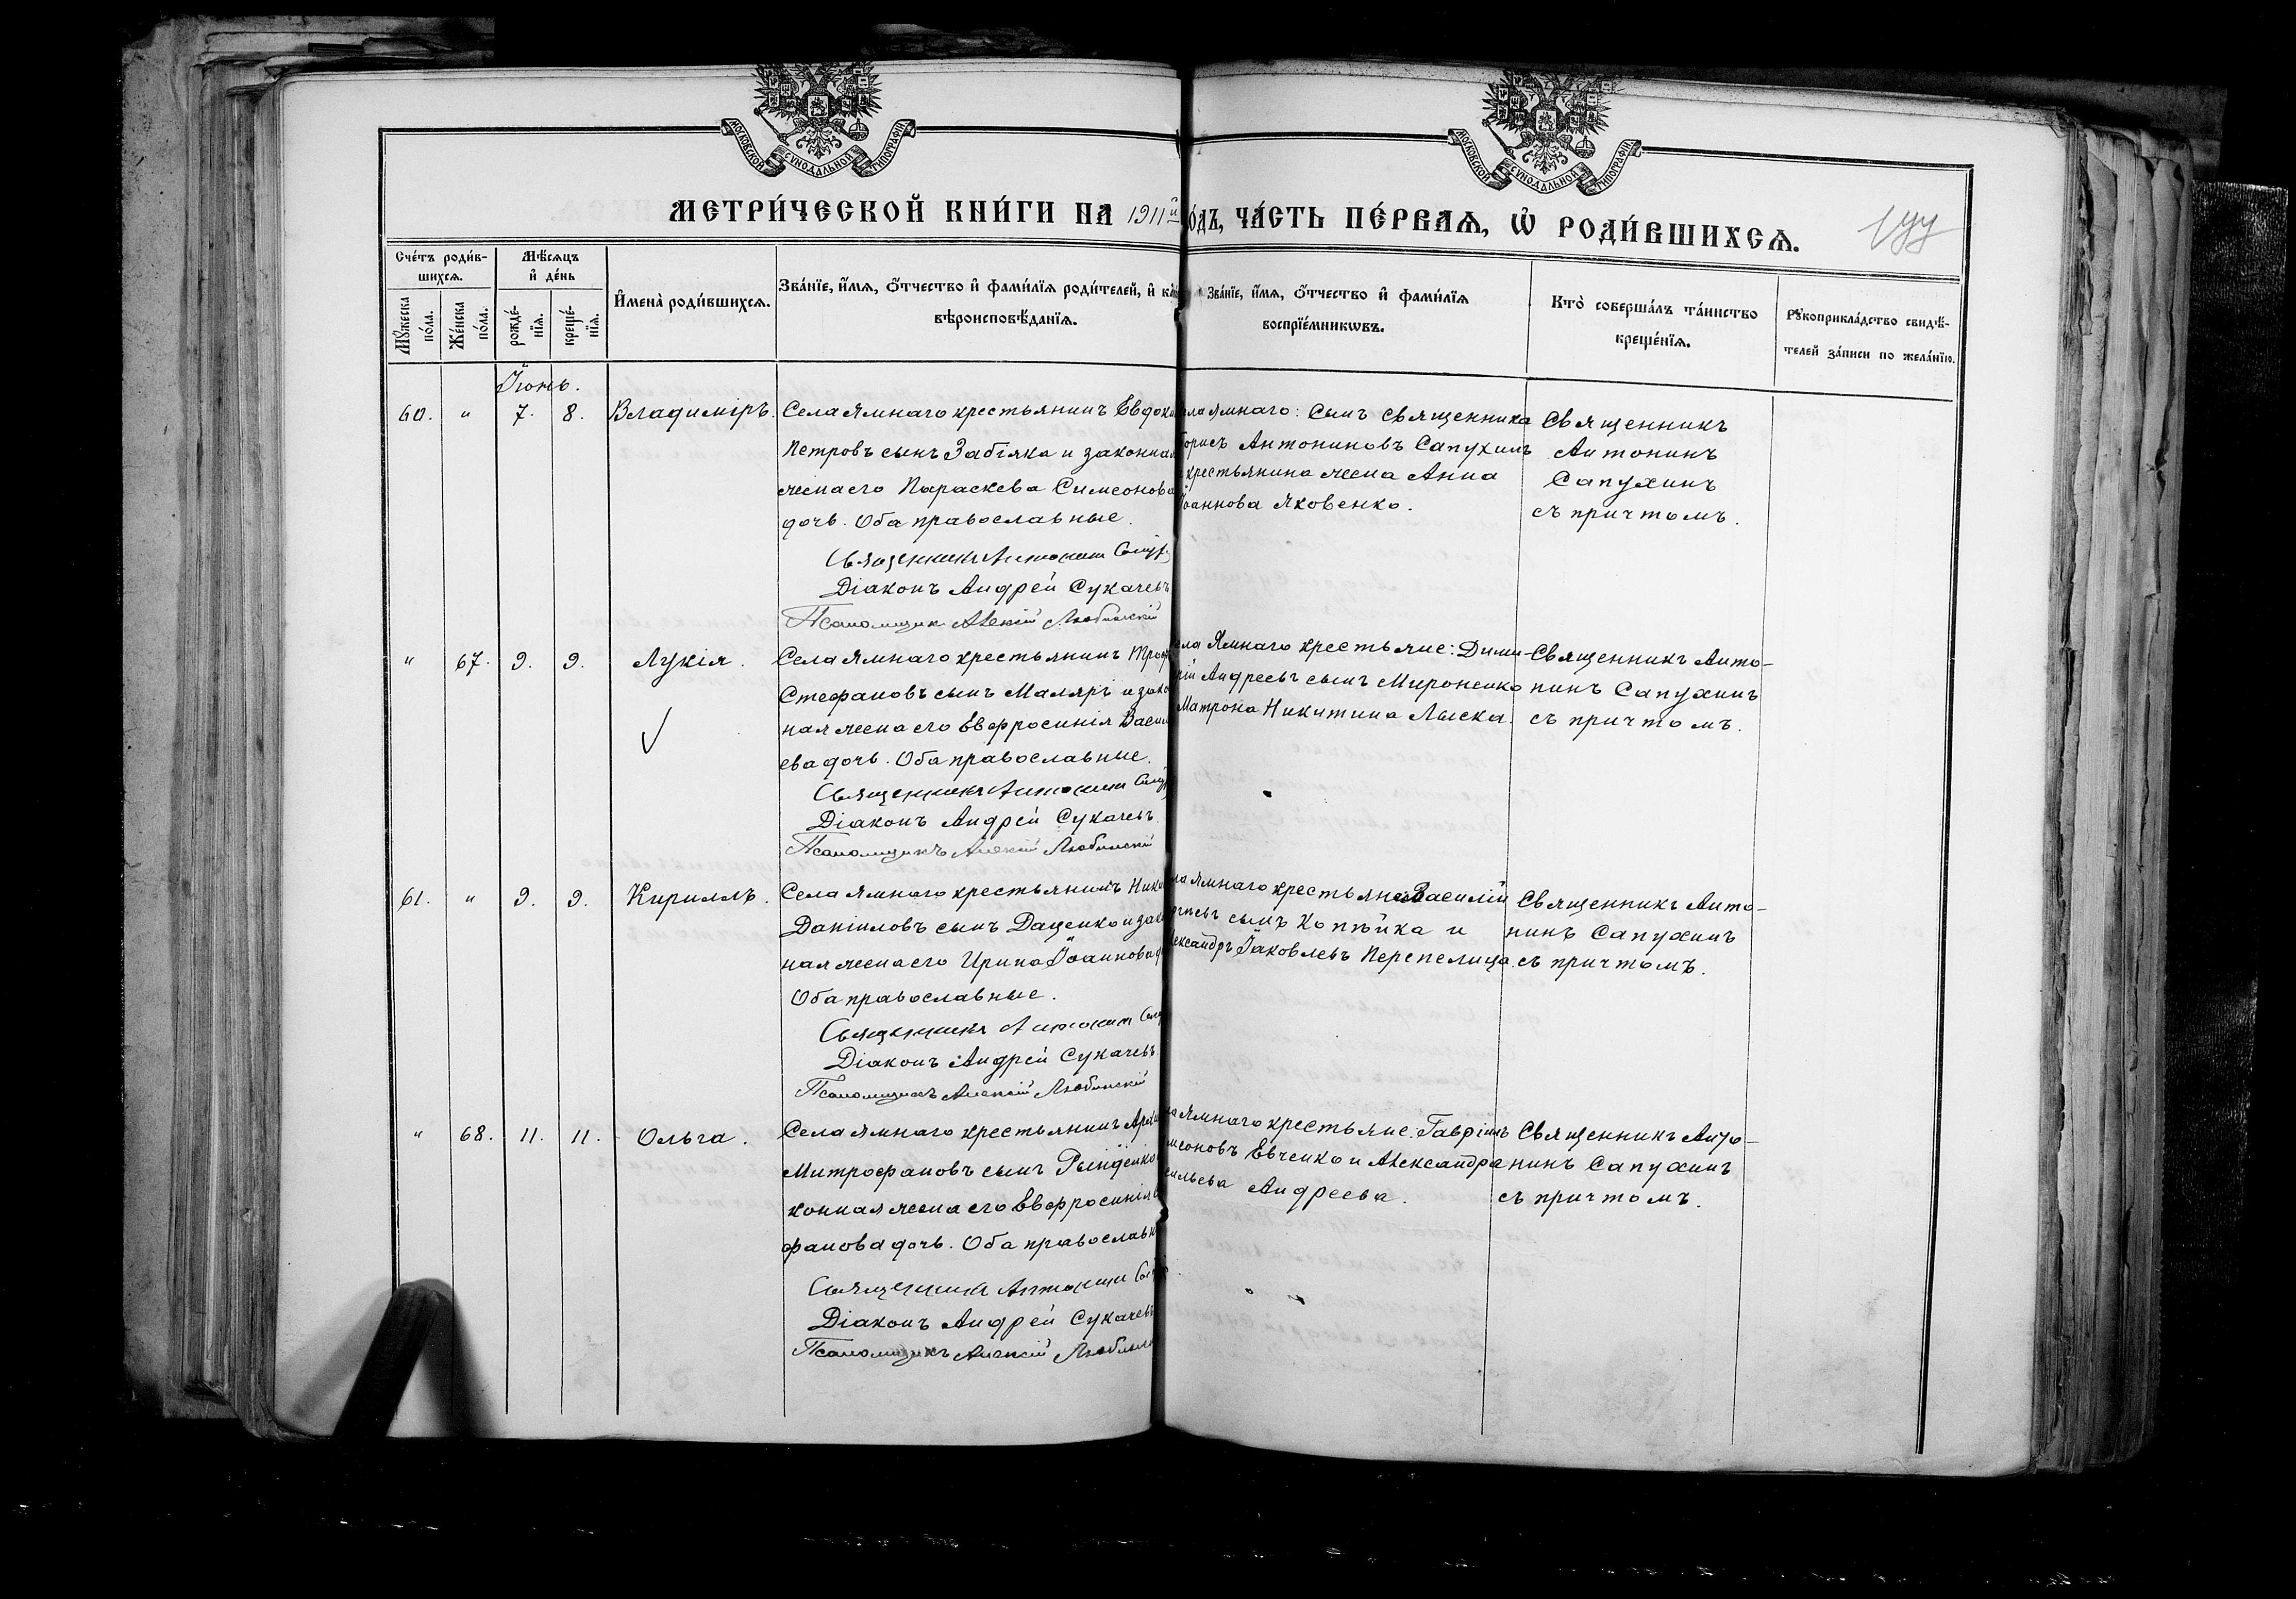 МОСКОВСКОЙ СѴНОДАЛЬНОЙ ТИПОГРАФІИ
МОСКОВСКОЙ СѴНОДАЛЬНОЙ ТИПОГРАФІИ
МЕТРИ́ЧЕСКОЙ КНИ́ГИ НА 1911й
О́ДЪ, ЧА́СТЬ ПЕ́РВАѦ, Ѽ РОДИ́ВШИХСѦ.
Сче́тъ роди́в-
шихсѧ.
Мѣ́сѧцъ
и҆ де́нь
Мꙋ́жеска
по́ла.
Же́нска
по́ла.
рожде́-
нїѧ.
креще́-
нїѧ.
И҆мена̀ роди́вшихсѧ.
Зва́нїе, и҆́мѧ, ѻ҆́тчество и҆ фами́лїѧ роди́телей, и҆
вѣроисповѣ́данїѧ.
Зва́нїе, и҆́мѧ, ѻ҆́тчество и҆ фами́лїѧ
воспрїе́мникѡвъ.
Кто̀ соверша́лъ та́инство
креще́нїѧ.
Рꙋкоприкла́дство свидѣ́-
телей за́писи по жела́нїю.
Іюнь.
60. " 7. 8. Владиміръ.
Села Ямнаго крестьянинъ Евдоки
Петровъ сынъ Забіяка и законная
жена его Параскева Симеонова
дочь. Оба православные.
Священникъ Антонинъ
Діаконъ Андрей Сукачевъ
Псаломщикъ Алексій Любинскій
ела Ямнаго: Сынъ священника
Борисъ Антониновъ Сапухинъ
крестьянина жена Анна
Іоаннова Яковенко.
Священникъ
Антонинъ
Сапухинъ
съ причтомъ.
" 67. 9. 9. Лукія.
Села Ямнаго крестьянинъ Троф
Стефановъ сынъ Маляръ и зако
ная жена его Евфросинія Васил
ева дочь. Оба православные.
Священникъ Антонинъ
Діаконъ Андрей Сукачевъ.
Псаломщикъ Алексій Любинскій
ела Ямнаго крестьяне: Дими-
рій Андреевъ сынъ Мироненко
Матрона Никитина Лыска.
Священникъ Анто-
нинъ Сапухинъ
съ причтомъ.
61. " 9. 9. Кириллъ.
Села Ямнаго крестьянинъ Ник
Даніиловъ сынъ Даценко и зак
ная жена его Ирина Іоаннова
Оба православные.
Священникъ Антонинъ
Діаконъ Андрей Сукачевъ.
Псаломщикъ Алексій Любинскій
ла Ямнаго крестьяне Василій
сынъ Копѣйка и
лександръ Іаковлевъ Перепелица.
Священникъ Анто-
нинъ Сапухинъ
съ причтомъ.
" 68. 11. 11. Ольга.
Села Ямнаго крестьянинъ
Митрофановъ сынъ
конная жена его Евфросинія
фанова дочь. Оба православн
Священникъ Антонинъ
Діаконъ Андрей Сукачевъ
Псаломщикъ Алексій
ла Ямнаго крестьяне: Гавріилъ
меоновъ Евченко и Александра
сильева Андреева.
Священникъ Анто-
нинъ Сапухинъ
съ причтомъ.